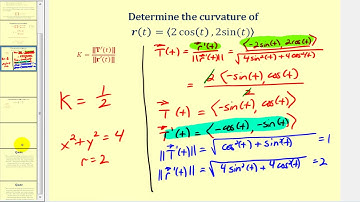 Determine the curvature of
r(t) = ⟨2 cos(t), 2sin(t)⟩
K = ||T'(t)|| / ||r'(t)||
T(t) = r'(t) / ||r'(t)|| = ⟨-2sin(t), 2cos(t)⟩ / √(4sin²(t) + 4cos²(t))
= 2⟨-sin(t), cos(t)⟩ / 2
T(t) = ⟨-sin(t), cos(t)⟩
T'(t) = ⟨-cos(t), -sin(t)⟩
||T'(t)|| = √(cos²(t) + sin²(t)) = 1
||r'(t)|| = √(4sin²(t) + 4cos²(t)) = 2
K = 1/2
x² + y² = 4
r = 2